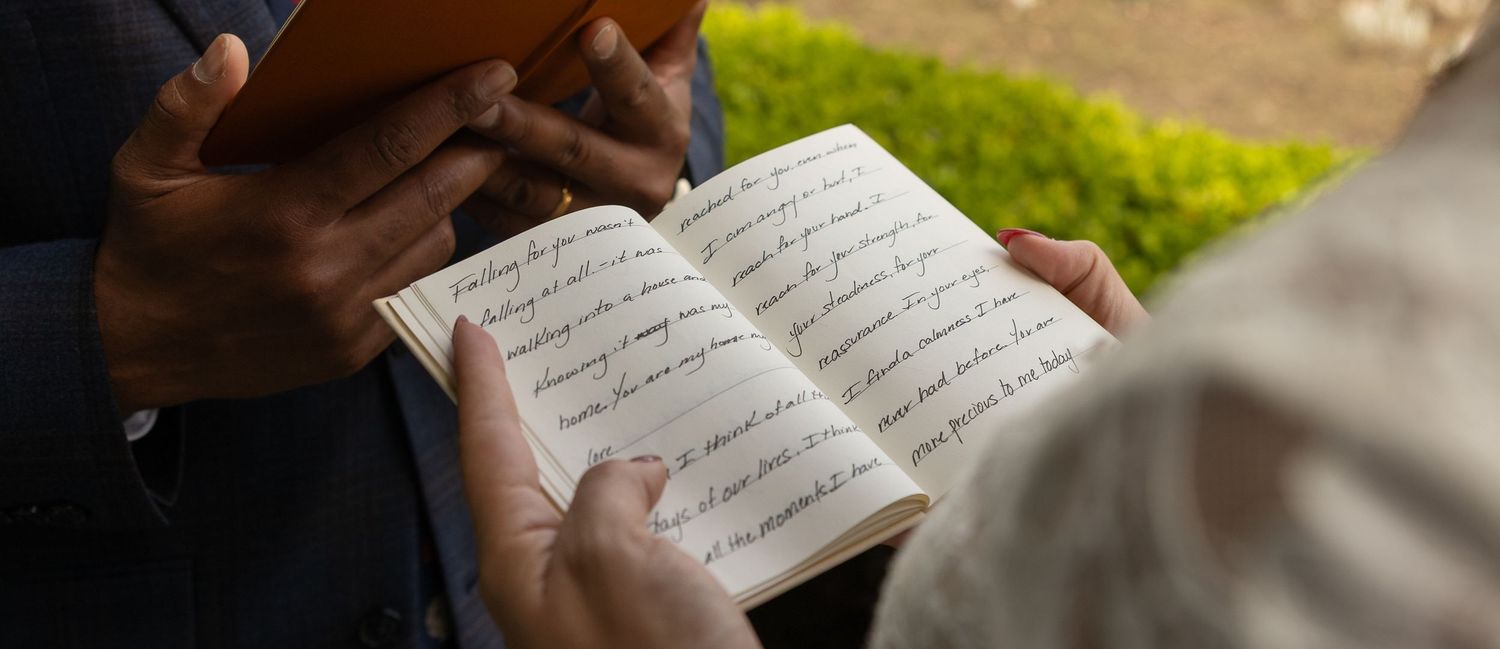 Falling for you wasn't
falling at all - it was
walking into a house and
Knowing it was my
home. You are my home my
love
I think of all the
days of our lives. I think
all the moments I have
reached for you even when
I am angry or hurt, I
reach for your hand. I
reach for your strength, for
your steadiness, for your
reassurance. In your eyes,
I find a calmness I have
never had before. You are
more precious to me today